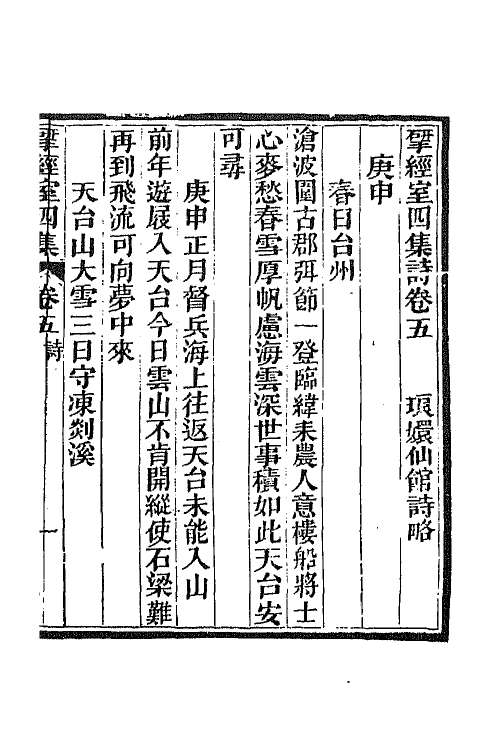 揅經室四集詩卷五　瑯嬛仙館詩略
庚申
春日台州
滄波圍古郡弭節一登臨緯耒農人意樓船將士
心麥愁春雪厚帆慮海雲深世事積如此天台安
可尋
庚申正月督兵海上往返天台未能入山
前年遊屐入天台今日雲山不肯開縱使石梁難
再到飛流可向夢中來
天台山大雪三日守凍剡溪
揅經室四集　卷五　詩　一